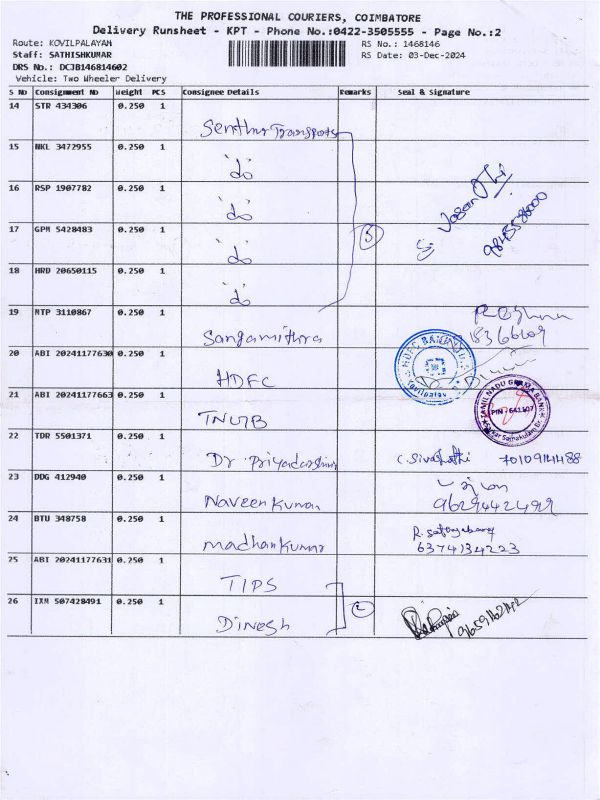 THE PROFESSIONAL COURIERS, COIMBATORE
Delivery Runsheet - KPT - Phone No.:0422-3505555 - Page No.:2
Route: KOVILPALAYAM
RS No.: 1468146
Staff: SATHISHKUMAR
RS Date: 03-Dec-2024
DRS No.: DCJB146814602
Vehicle: Two Wheeler Delivery
S No Consignment No Weight PCS Consignee Details Remarks Seal & Signature
14 STR 434306 0.250 1
Senthur Transports
15 NKL 3472955 0.250 1
do
16 RSP 1907782 0.250 1
do
17 GPM 5428483 0.250 1
do
18 HRD 20650115 0.250 1
do
5
19 MTP 3110867 0.250 1
Sangamithra
20 ABI 20241177630 0.250 1
HDFC
HDFC BANK
21 ABI 20241177663 0.250 1
TNGB
TAMIL NADU GRAMA BANK
PIN - 641107
22 TDR 5501371 0.250 1
Dr Priyadarshini
C. Sivasakthi
23 DDG 412940 0.250 1
Naveen Kumar
9629442499
24 BTU 348758 0.250 1
madhankumar
6374134223
25 ABI 20241177631 0.250 1
TIPS
26 IXM 507428491 0.250 1
Dinesh
2